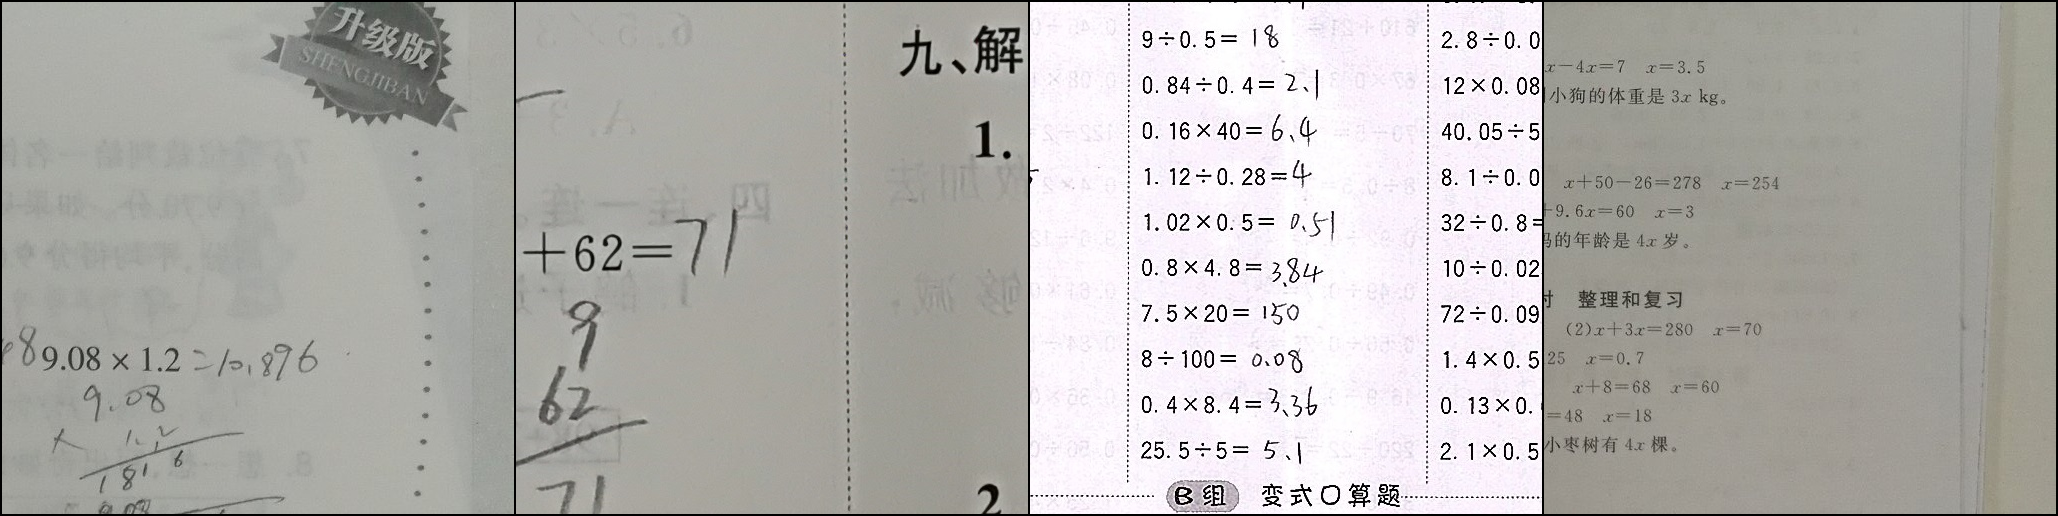 升级版
SHENGJIBAN
9.08×1.2=10.896
9.08
× 1.2
1816
908
+62=71
9
62
71
九、解
1.
2
9÷0.5=18
0.84÷0.4=2.1
0.16×40=6.4
1.12÷0.28=4
1.02×0.5=0.51
0.8×4.8=3.84
7.5×20=150
8÷100=0.08
0.4×8.4=3.36
25.5÷5=5.1
B组 变式口算题
2.8÷0.0
12×0.08
40.05÷5
8.1÷0.0
32÷0.8=
10÷0.02
72÷0.09
1.4×0.5
0.13×0.
2.1×0.5
x-4x=7 x=3.5
小狗的体重是 3x kg。
x+50-26=278 x=254
+9.6x=60 x=3
妈的年龄是 4x 岁。
整理和复习
(2)x+3x=280 x=70
25 x=0.7
x+8=68 x=60
=48 x=18
小枣树有 4x 棵。